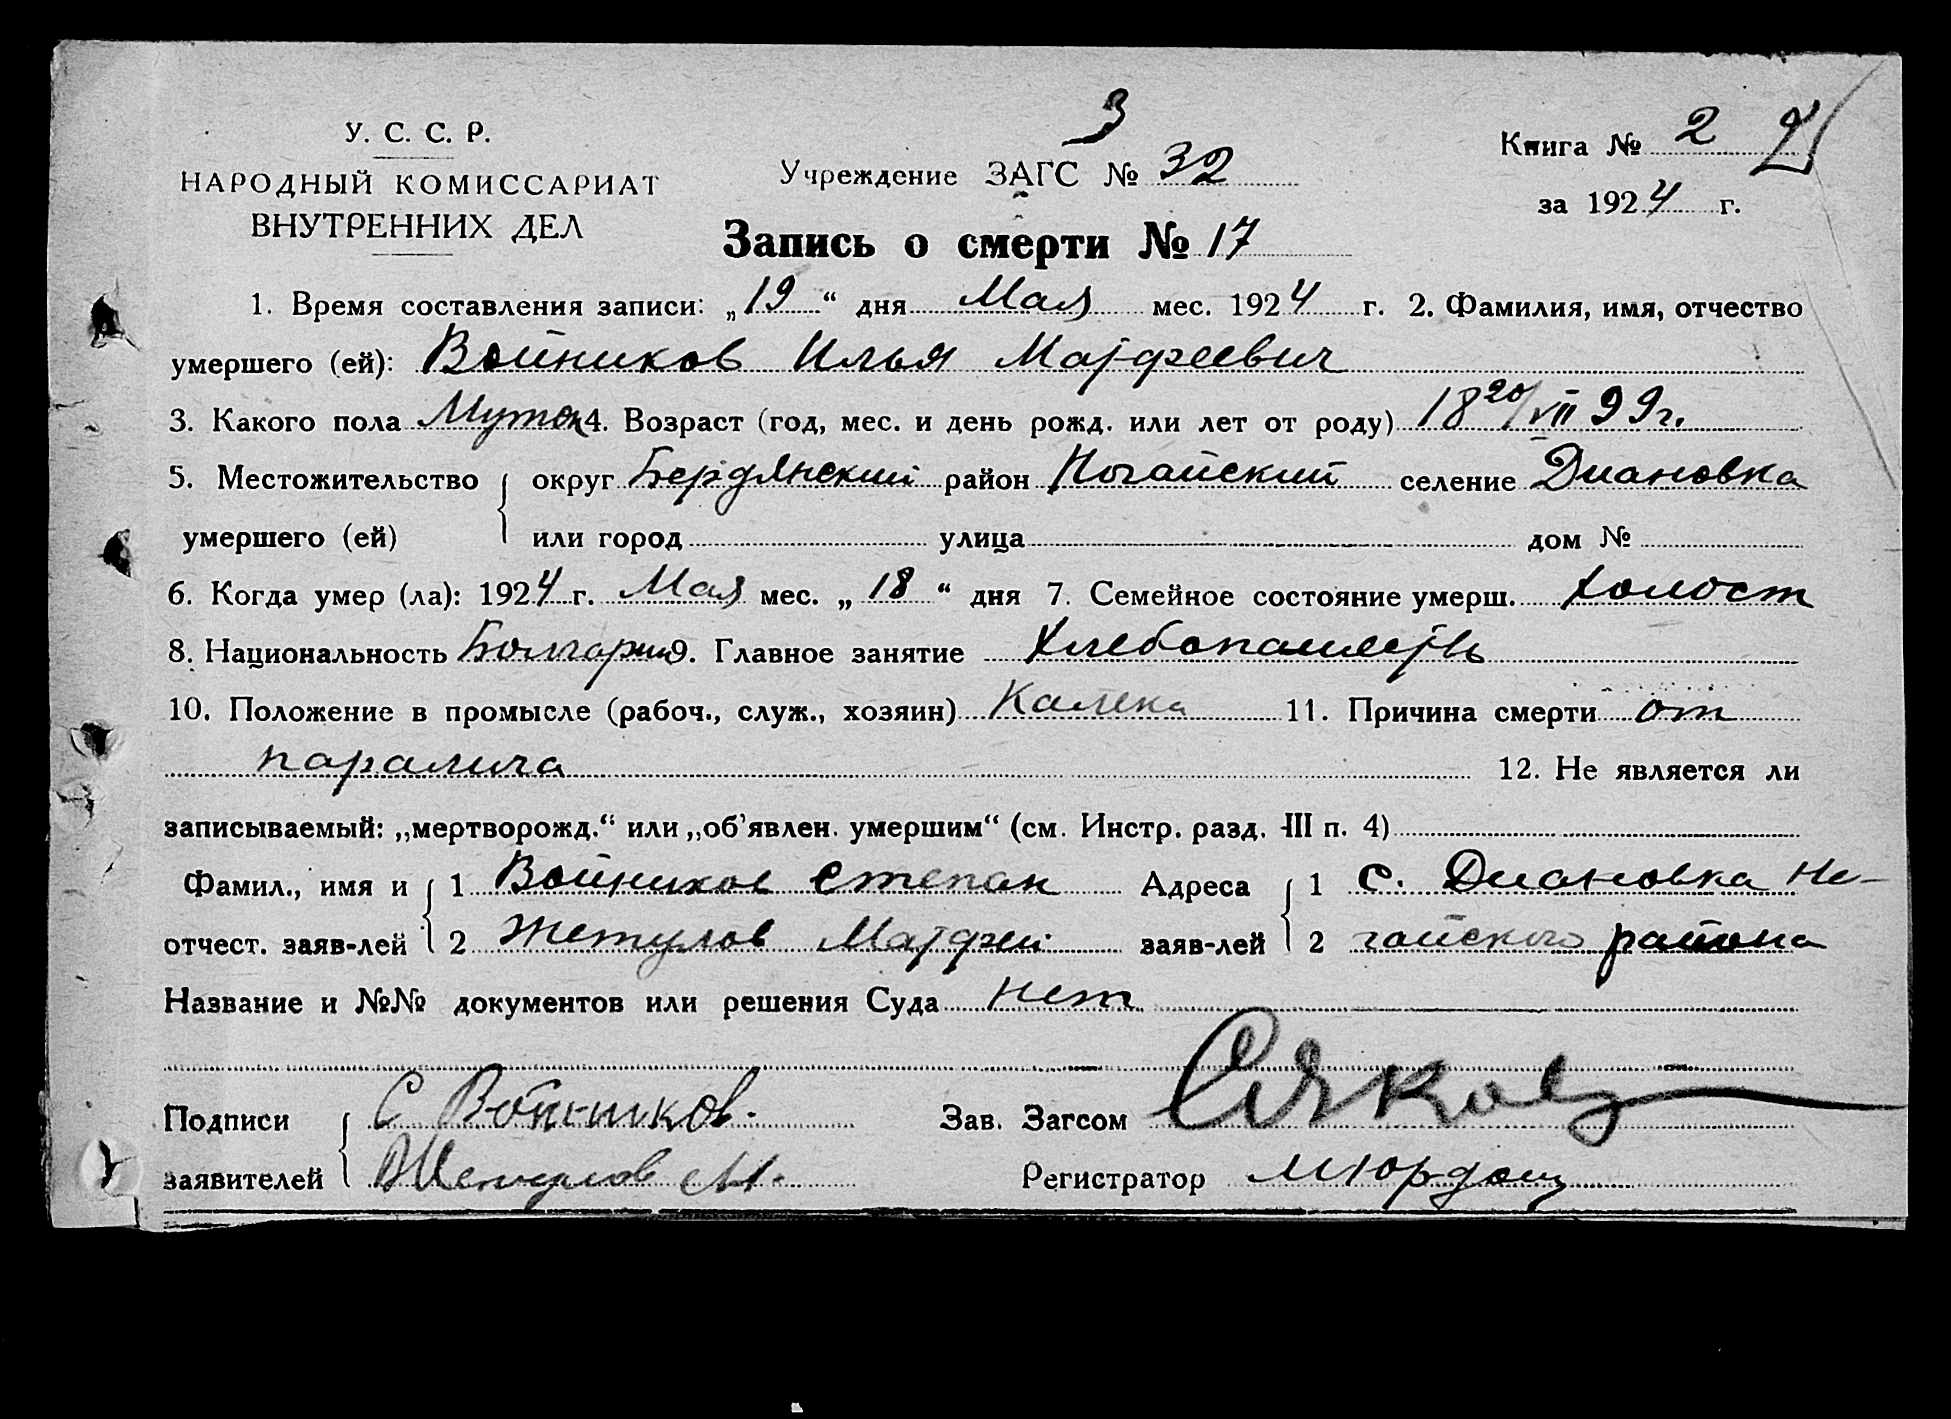 У. С. С. Р.
НАРОДНЫЙ КОМИССАРИАТ
ВНУТРЕННИХ ДЕЛ
3
Учреждение ЗАГС № 32
Книга № 2
за 1924 г.
Запись о смерти № 17
1. Время составления записи: „19“ дня Мая мес. 1924 г. 2. Фамилия, имя, отчество
умершего (ей): Войников Илья Матфеевич
3. Какого пола Мужск 4. Возраст (год, мес. и день рожд. или лет от роду) 18 20/VII 99 г.
5. Местожительство округ Бердянский район Ногайский селение Диановка
умершего (ей) или город улица дом №
6. Когда умер (ла): 1924 г. Мая мес. „18“ дня 7. Семейное состояние умерш. холост
8. Национальность Болгарин 9. Главное занятие Хлебопашеств
10. Положение в промысле (рабоч., служ., хозяин) Калека 11. Причина смерти от
паралича 12. Не является ли
записываемый: „мертворожд.“ или „об'явлен. умершим“ (см. Инстр. разд. III п. 4)
Фамил., имя и 1 Войников Степан Адреса 1 с. Диановка Но-
отчест. заяв-лей 2 Жетулов Матфей заяв-лей 2 гайского района
Название и №№ документов или решения Суда нет
Подписи С Войников. Зав. Загсом
заявителей Жетулов М. Регистратор